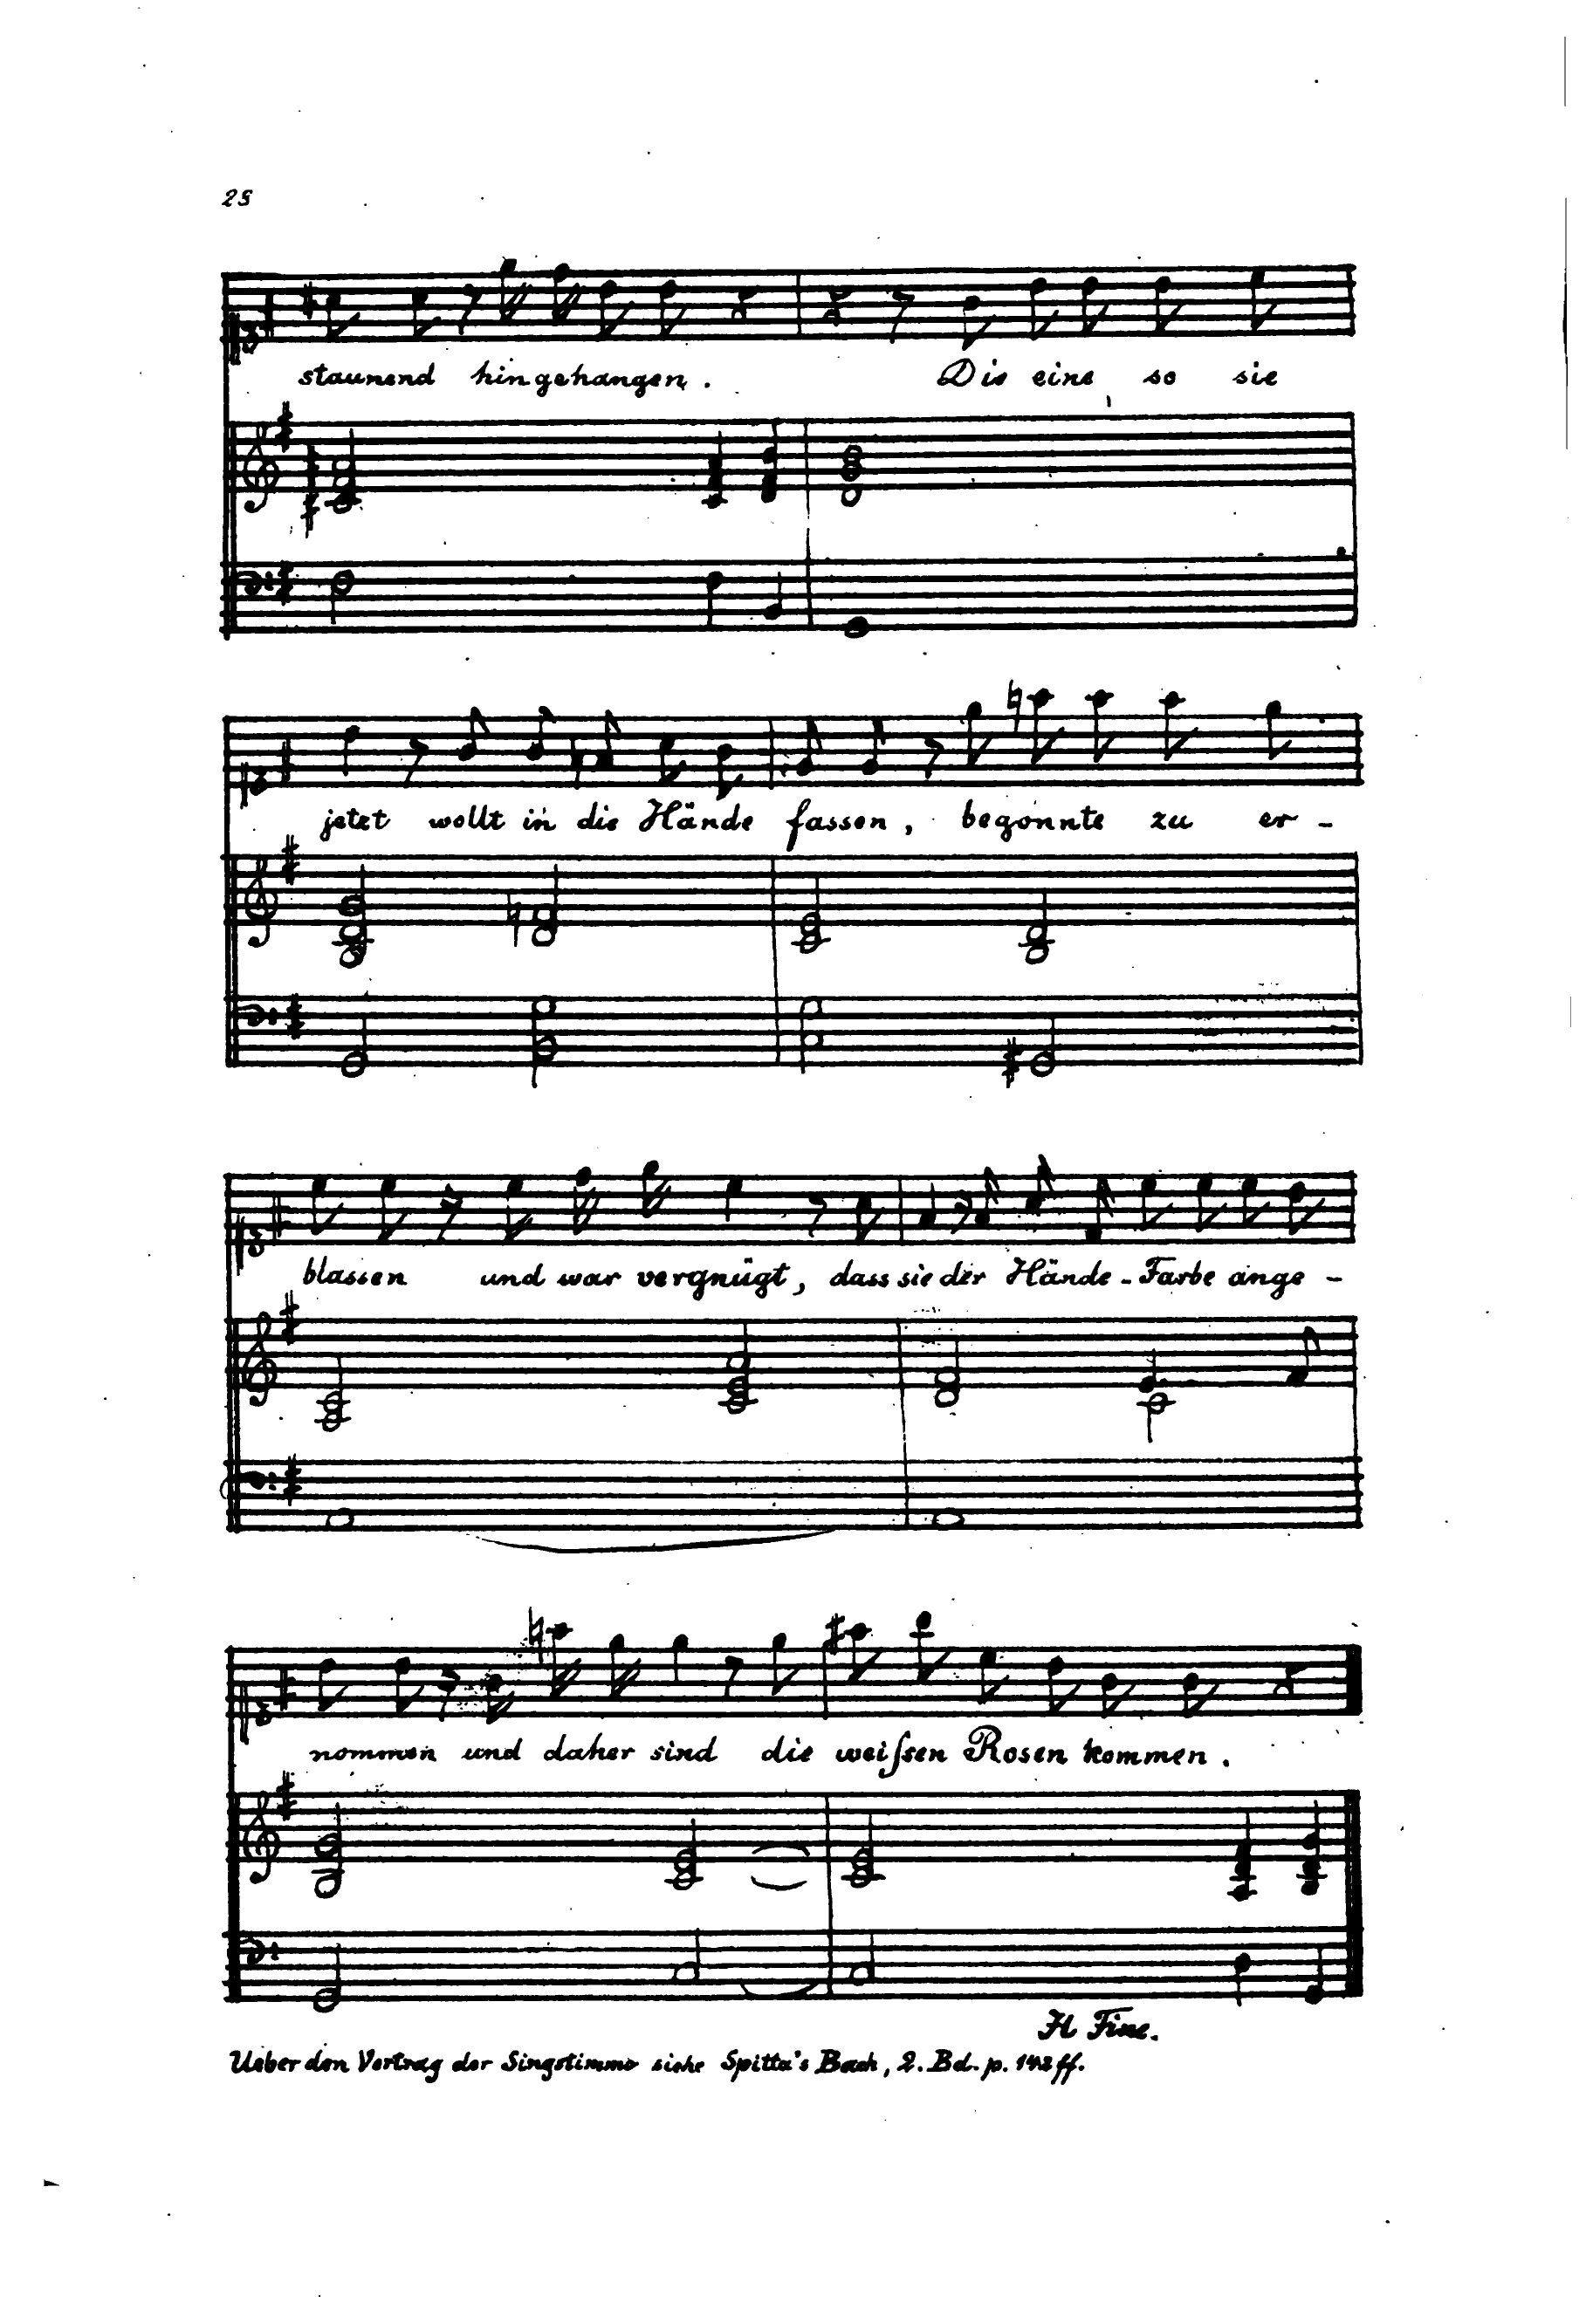 25
staunend hingehangen. Die eine so sie
jetzt wollt in die Hände fassen, begonnte zu er-
blassen und war vergnügt, dass sie der Hände-Farbe ange-
nommen und daher sind die weiſsen Rosen kommen.
Il Fine.
Ueber den Vortrag der Singstimme siehe Spitta's Bach, 2. Bd. p. ff.